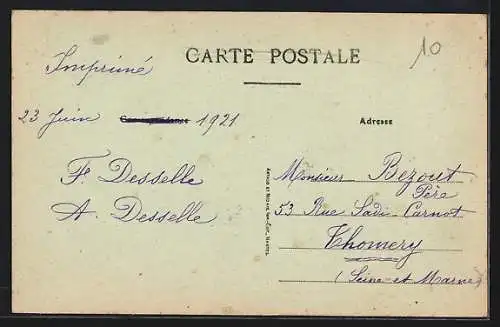 CARTE POSTALE
10
Imprimé
23 Juin Correspondance 1921
Adresse
F. Desselle
A. Desselle
Monsieur Bezout
Père
53 Rue Sadi Carnot
Thomery
(Seine-et Marne)